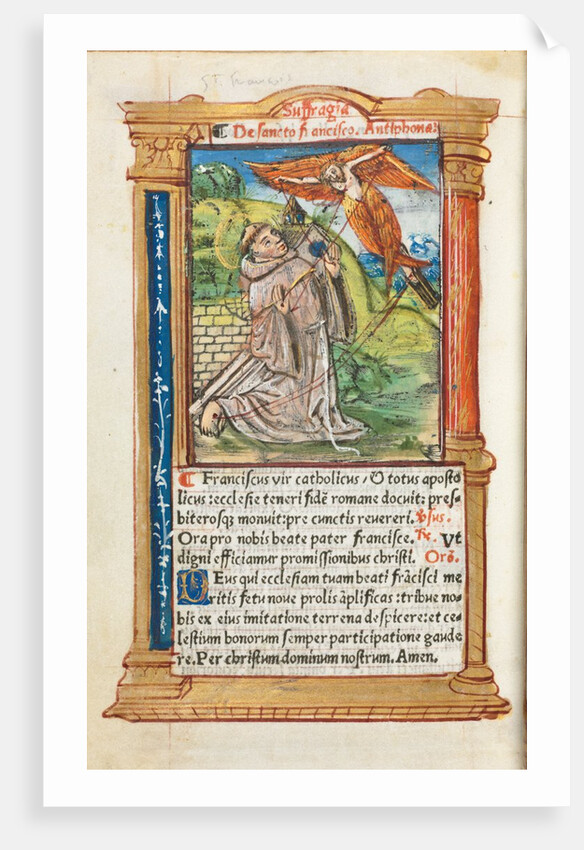 ST. François
Suffragia
¶ De sancto frãcisco. Antiphona:
¶ Franciscus vir catholicus / & totus aposto
licus: ecclesie teneri fidẽ romane docuit: pres-
biterosq; monuit: pre cunctis revereri. ℣sus.
Ora pro nobis beate pater francisce. ℟. Ut
digni efficiamur promissionibus christi. Orõ.
Deus qui ecclesiam tuam beati frãcisci me
ritis fetu noue prolis ãplificas: tribue no-
bis ex eius imitatione terrena despicere: et ce-
lestium bonorum semper participatione gaude
re. Per christum dominum nostrum. Amen.